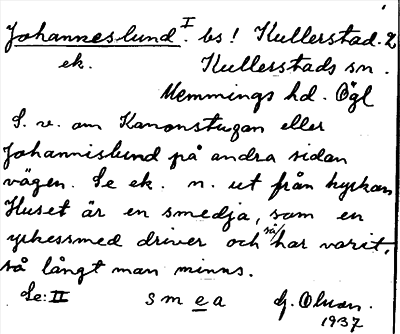 Johanneslund. I bs! Kullerstad. 2
ek. Kullerstads sn.
Memmings hd. Ögl
S. v. om Kanonstugan eller
Johannislund på andra sidan
vägen. Se ek. n. ut från kyrkan
Huset är en smedja, som en
yrkessmed driver och så har varit,
så långt man minns.
Se: II s m e a G. Olson.
1937